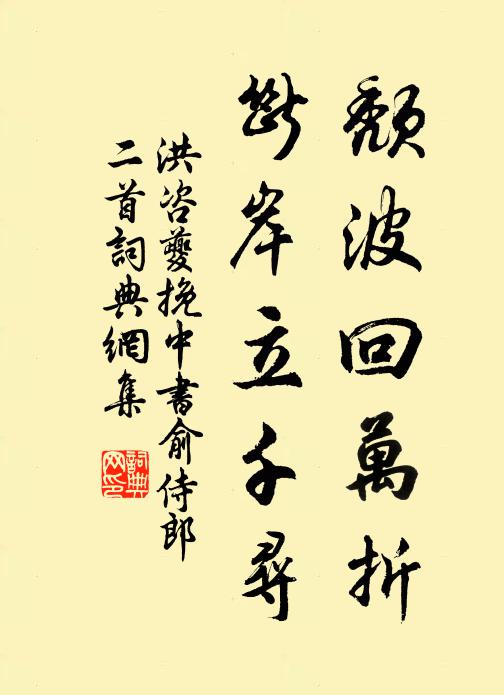 頹波回萬折
斷岸立千尋
洪咨夔挽中書俞侍郎
二首詞典網集
詞典
网印